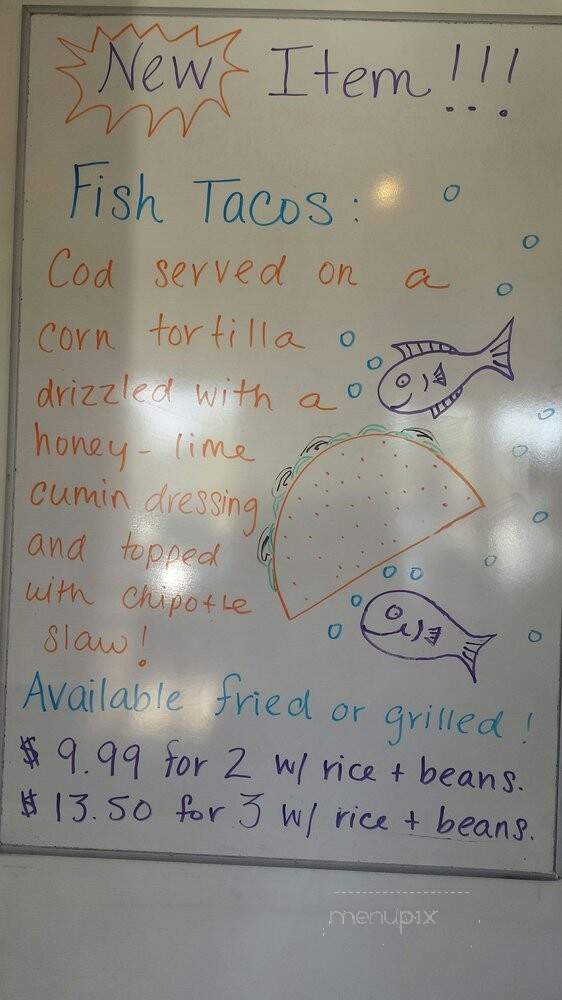 New Item!!!
Fish Tacos:
Cod served on a
corn tortilla
drizzled with a
honey-lime
cumin dressing
and topped
with chipotle
slaw!
Available fried or grilled!
$ 9.99 for 2 w/ rice + beans.
$ 13.50 for 3 w/ rice + beans.
menupix